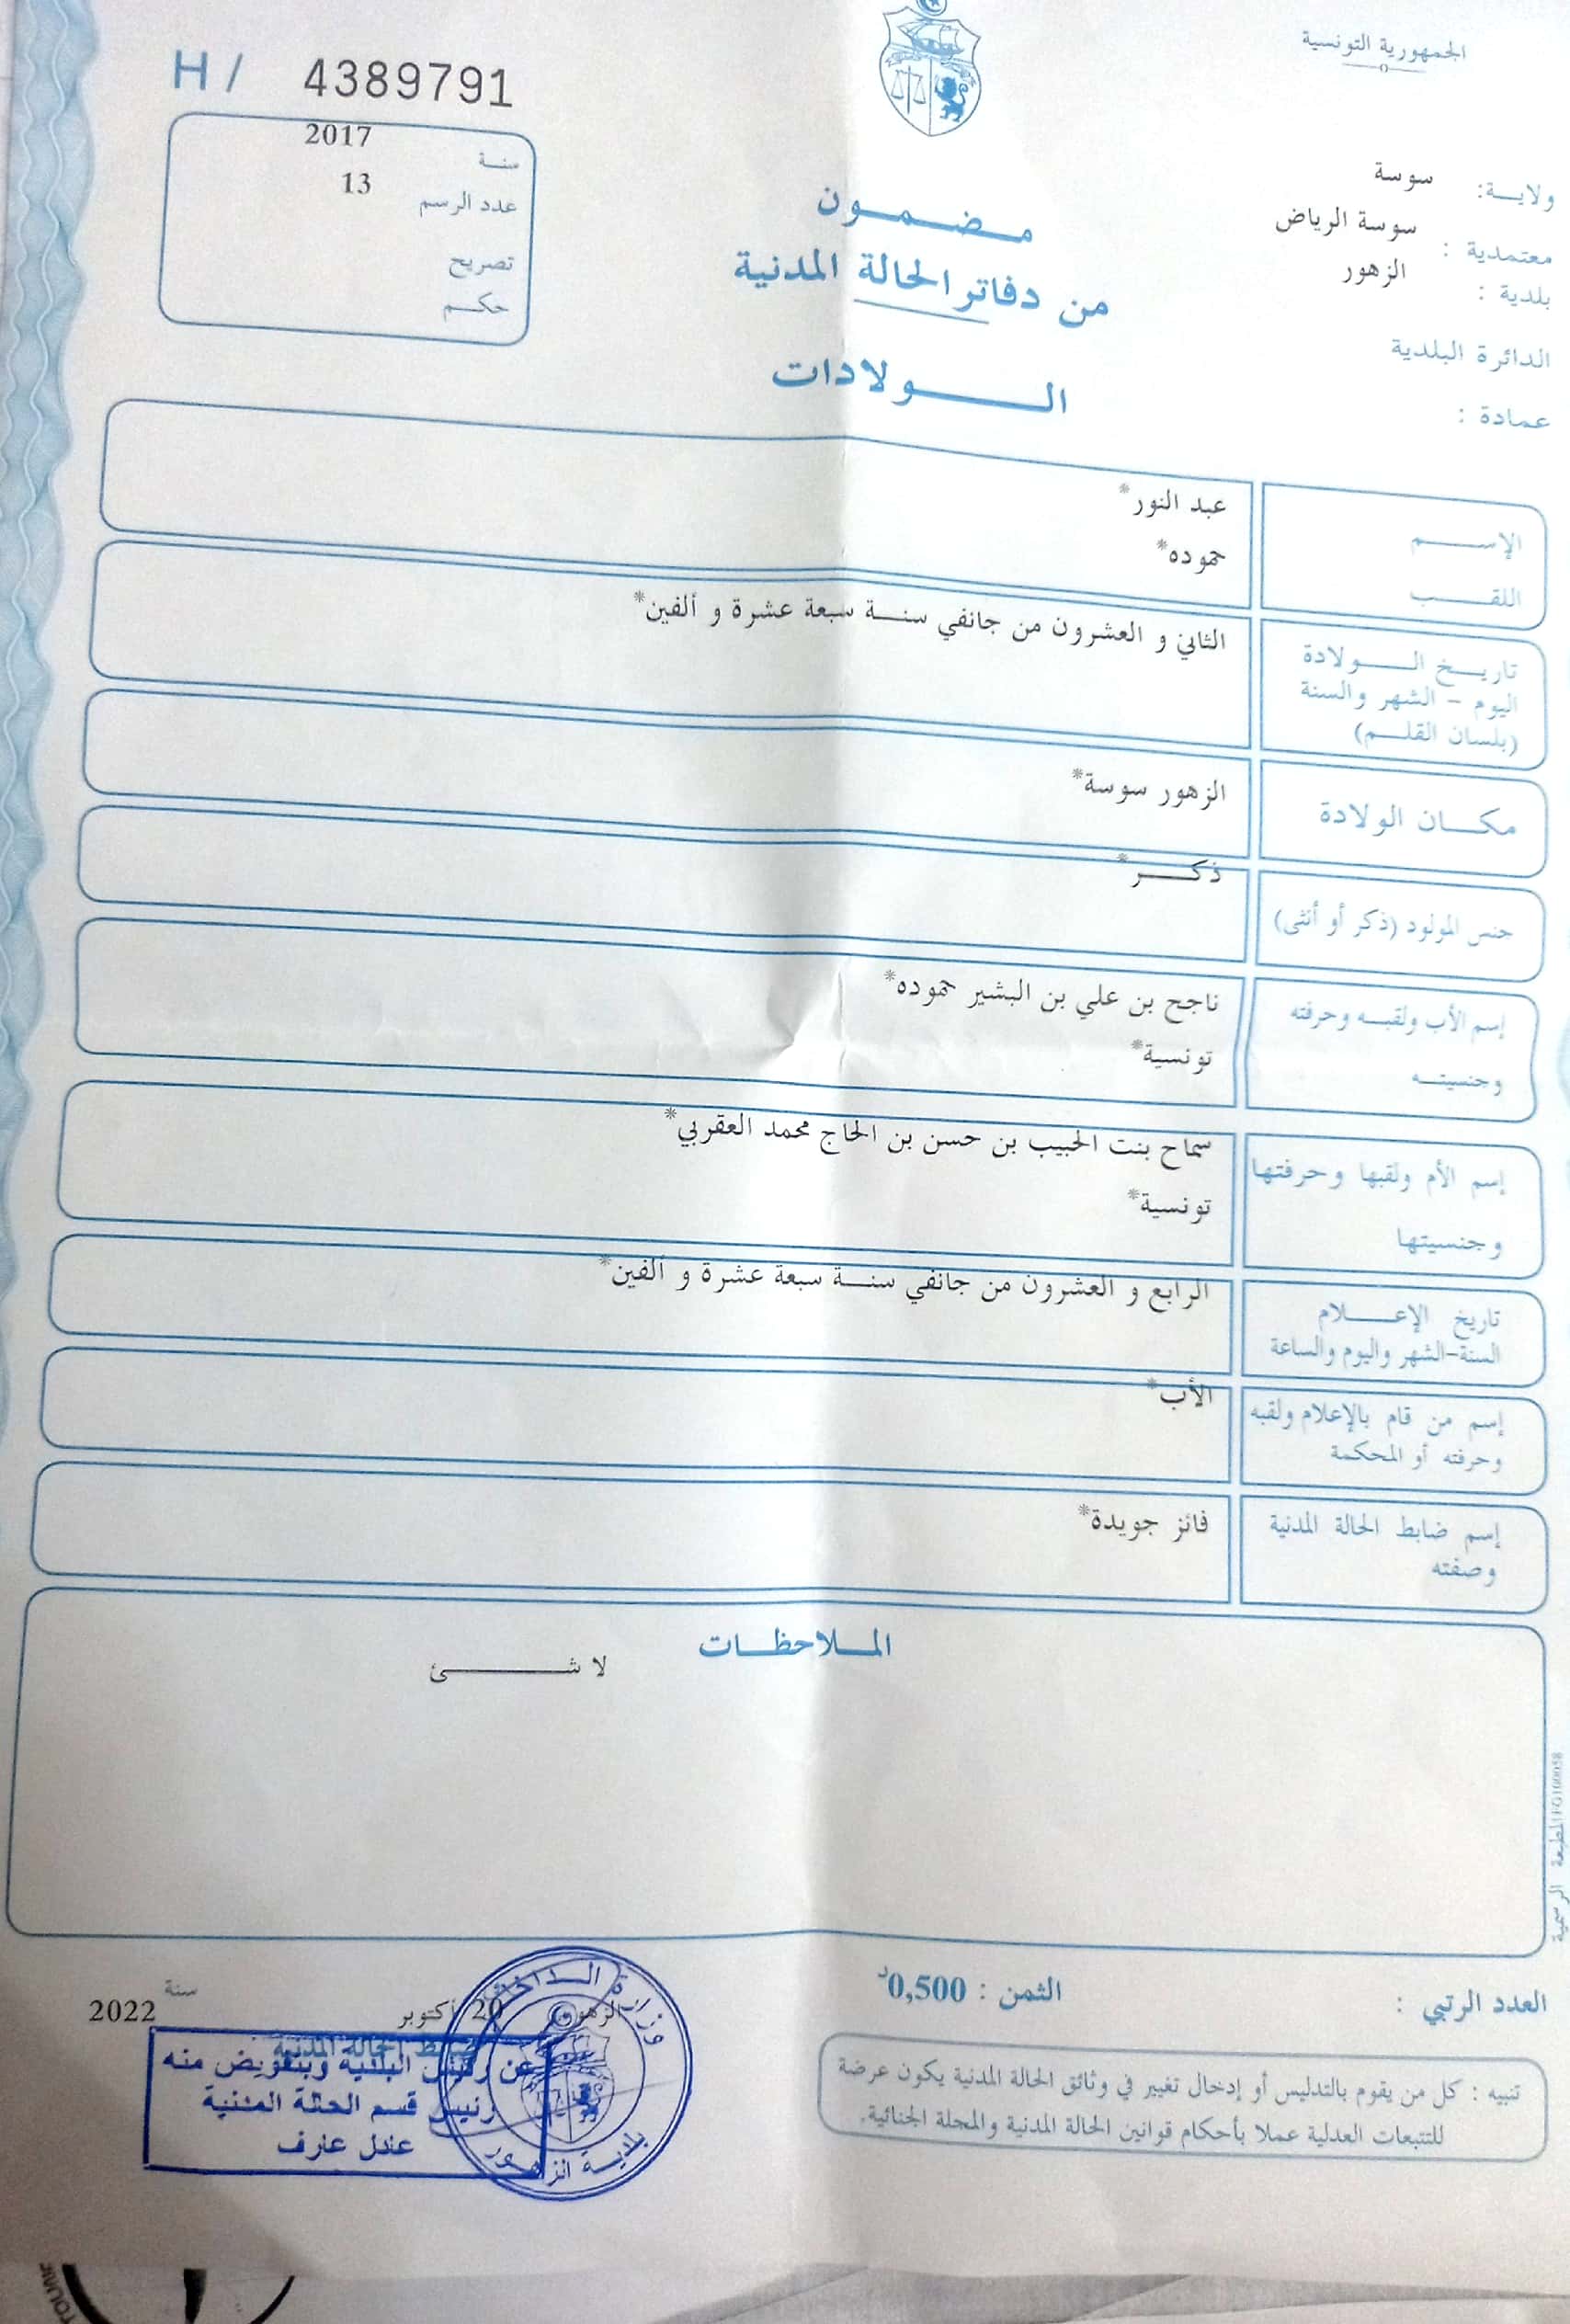 الجمهورية التونسية
H / 4389791
سنة 2017
عدد الرسم 13
تصريح
حكم
ولاية: سوسة
معتمدية : سوسة الرياض
بلدية : الزهور
الدائرة البلدية
عمادة :
مضمون
من دفاتر الحالة المدنية
الولادات
الإسم عبد النور*
اللقب حموده*
تاريخ الولادة
اليوم - الشهر والسنة
(بلسان القلم)
الثاني و العشرون من جانفي سنة سبعة عشرة و ألفين*
مكان الولادة الزهور سوسة*
جنس المولود (ذكر أو أنثى) ذكر*
إسم الأب ولقبه وحرفته ناجح بن علي بن البشير حموده*
وجنسيته تونسية*
إسم الأم ولقبها وحرفتها سماح بنت الحبيب بن حسن بن الحاج محمد العقربي*
وجنسيتها تونسية*
تاريخ الإعلام
السنة-الشهر واليوم والساعة
الرابع و العشرون من جانفي سنة سبعة عشرة و ألفين*
إسم من قام بالإعلام ولقبه
وحرفته أو المحكمة
الأب*
إسم ضابط الحالة المدنية
وصفته
فائز جويدة*
الملاحظات
لا شئ
المطبعة الرسمية
العدد الرتبي :
الثمن : 0,500د
الزهور 20 أكتوبر سنة 2022
ضابط الحالة المدنية
عن رئيس البلدية وبتفويض منه
رئيس قسم الحالة المدنية
عادل عارف
وزارة الداخلية
بلدية الزهور
تنبيه : كل من يقوم بالتدليس أو إدخال تغيير في وثائق الحالة المدنية يكون عرضة
للتتبعات العدلية عملا بأحكام قوانين الحالة المدنية والمجلة الجنائية.